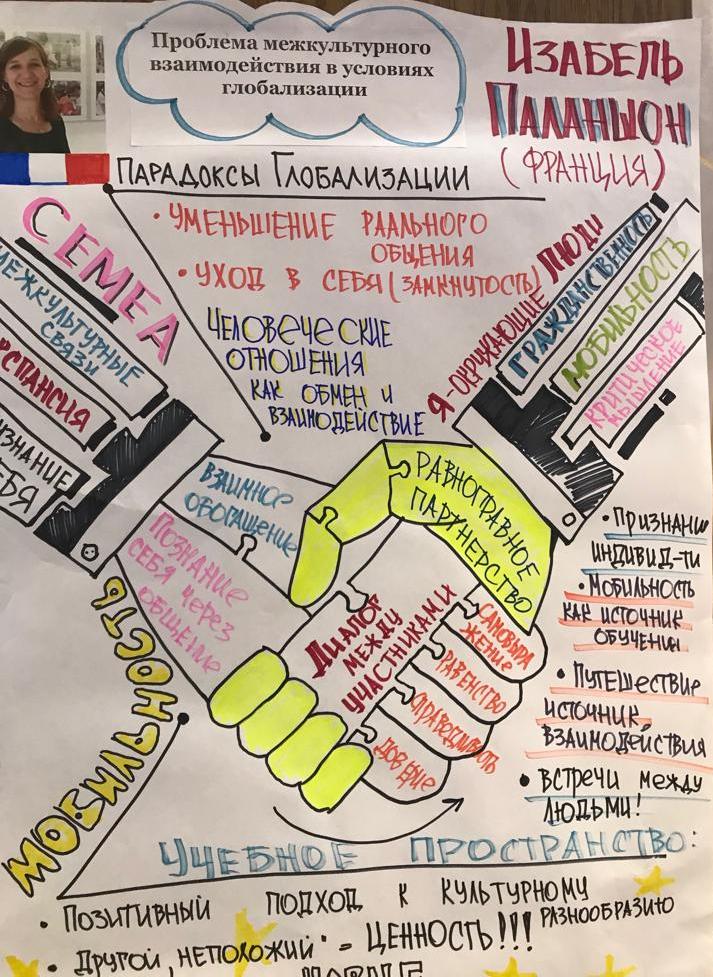 Проблема межкультурного
взаимодействия в условиях
глобализации
ИЗАБЕЛЬ
ПАЛАНШОН
(ФРАНЦИЯ)
ПАРАДОКСЫ ГЛОБАЛИЗАЦИИ
• УМЕНЬШЕНИЕ РАЛЬНОГО
ОБЩЕНИЯ
• УХОД В СЕБЯ (ЗАМКНУТОСТЬ)
ЧЕЛОВЕЧЕСКИЕ
ОТНОШЕНИЯ
КАК ОБМЕН И
ВЗАИМОДЕЙСТВИЕ
СЕМЕА
МЕЖКУЛЬТУРНЫЕ
СВЯЗИ
Я-ОКРУЖАЮЩИЕ ЛЮДИ
ГРАЖДАНСТВЕННОСТЬ
МОБИЛЬНОСТЬ
КРИТИЧЕСКОЕ
МЫШЛЕНИЕ
ВЗАИМНОЕ
ОБОГАЩЕНИЕ
ПОЗНАНИЕ
СЕБЯ ЧЕРЕЗ
ОБЩЕНИЕ
РАВНОПРАВНОЕ
ПАРТНЕРСТВО
ДИАЛОГ
МЕЖДУ
УЧАСТНИКАМИ
САМОВЫРА
ЖЕНИЕ
РАВЕНСТВО
СПРАВЕДЛИВОСТЬ
ДОВЕРИЕ
• ПРИЗНАНИ
ИНДИВИД-ТИ
• МОБИЛЬНОСТЬ
КАК ИСТОЧНИК
ОБУЧЕНИЯ
• ПУТЕШЕСТВИЕ
ИСТОЧНИК
ВЗАИМОДЕЙСТВИЯ
• ВСТРЕЧИ МЕЖДУ
ЛЮДЬМИ!
МОБИЛЬНОСТЬ
УЧЕБНОЕ ПРОСТРАНСТВО:
• ПОЗИТИВНЫЙ ПОДХОД К КУЛЬТУРНОМУ
РАЗНООБРАЗИЮ
• ДРУГОЙ, НЕПОХОЖИЙ" = ЦЕННОСТЬ!!!